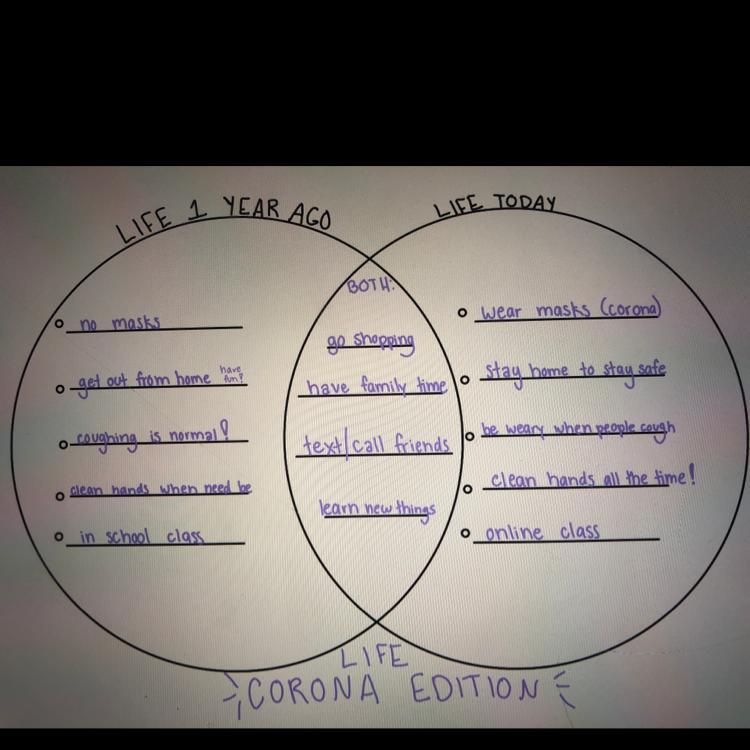 LIFE 1 YEAR AGO
no masks
get out from home have fun?
coughing is normal!
clean hands when need be
in school class
BOTH:
go shopping
have family time
text/call friends
learn new things
LIFE TODAY
wear masks (corona)
stay home to stay safe
be weary when people cough
clean hands all the time!
online class
LIFE
CORONA EDITION